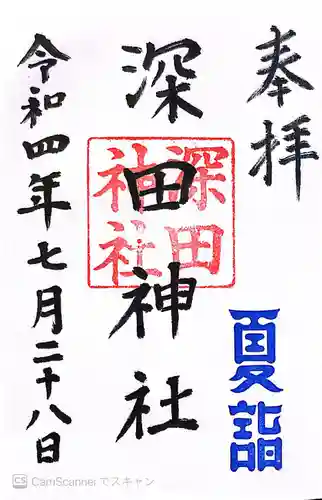 奉拝
夏詣
深田神社
深田
神社
令和四年七月二十八日
CS CamScanner でスキャン